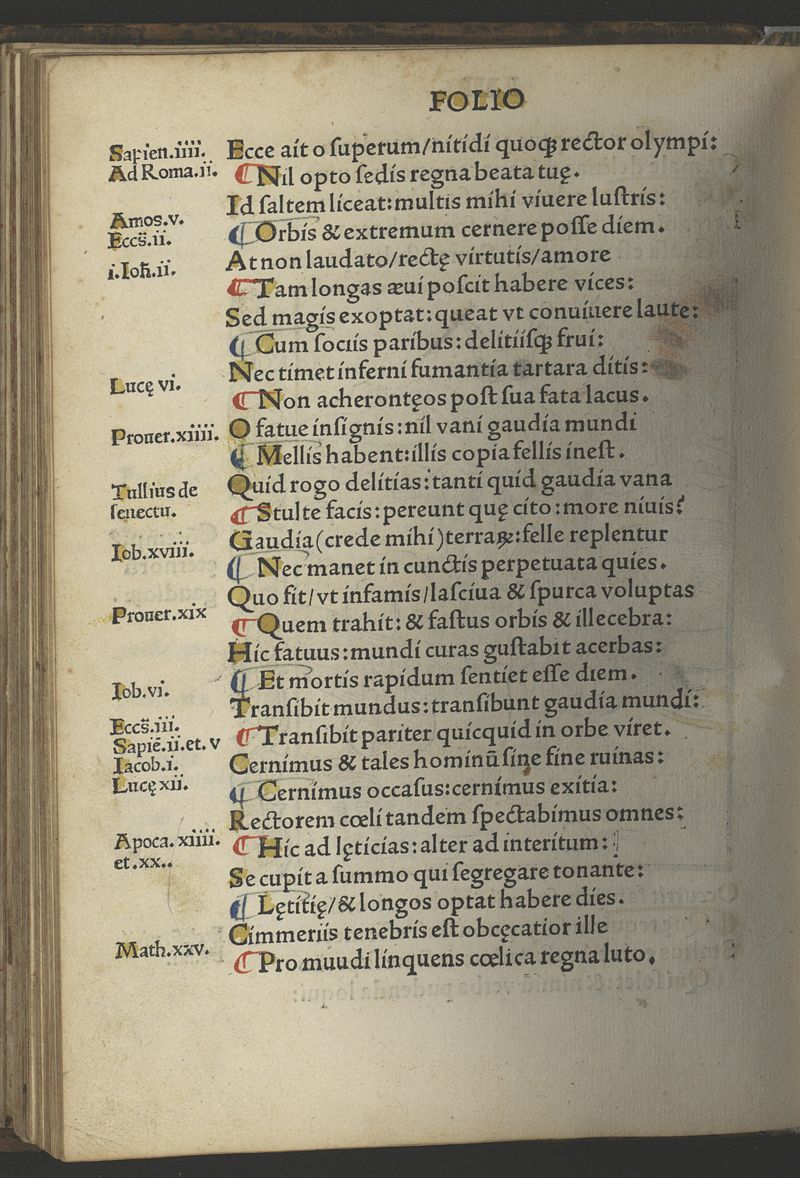 FOLIO
Sapien.iiii. Ecce ait o ſuperum/nitidi quoqꝫ rector olympi:
Ad Roma.ii. ¶ Nil opto ſedis regna beata tuę.
Id ſaltem liceat: multis mihi viuere luſtris:
Amos.v. ¶ Orbis & extremum cernere poſſe diem.
Eccs̄.ii.
At non laudato/rectę virtutis/amore
i.Ioh̄.ii. ¶ Tam longas æui poſcit habere vices:
Sed magis exoptat: queat vt conuiuere laute:
¶ Cum ſociis paribus: delitiiſqꝫ frui:
Nec timet inferni fumantia tartara ditis:
Lucę vi. ¶ Non acherontęos poſt ſua fata lacus.
Prouer.xiiii. O fatue inſignis: nil vani gaudia mundi
¶ Mellis habent: illis copia fellis ineſt.
Tullius de Quid rogo delitias: tanti quid gaudia vana
ſenectu. ¶ Stulte facis: pereunt quę cito: more niuis?
Iob.xviii. Gaudia (crede mihi) terraꝝ: felle replentur
¶ Nec manet in cunctis perpetuata quies.
Quo fit/vt infamis/laſciua & ſpurca voluptas
Prouer.xix ¶ Quem trahit: & faſtus orbis & illecebra:
Hic fatuus: mundi curas guſtabit acerbas:
Iob.vi. ¶ Et mortis rapidum ſentiet eſſe diem.
Tranſibit mundus: tranſibunt gaudia mundi:
Eccs̄.iii. ¶ Tranſibit pariter quicquid in orbe viret.
Sapiē.ii.et.v
Iacob.i. Cernimus & tales hominū ſine fine ruinas:
Lucę xii. ¶ Cernimus occaſus: cernimus exitia:
Rectorem cœli tandem ſpectabimus omnes:
Apoca.xiiii. ¶ Hic ad lęticias: alter ad interitum:
et.xx..
Se cupit a ſummo qui ſegregare tonante:
¶ Lętitię/& longos optat habere dies.
Cimmeriis tenebris eſt obcęcatior ille
Math.xxv. ¶ Pro muudi linquens cœlica regna luto.